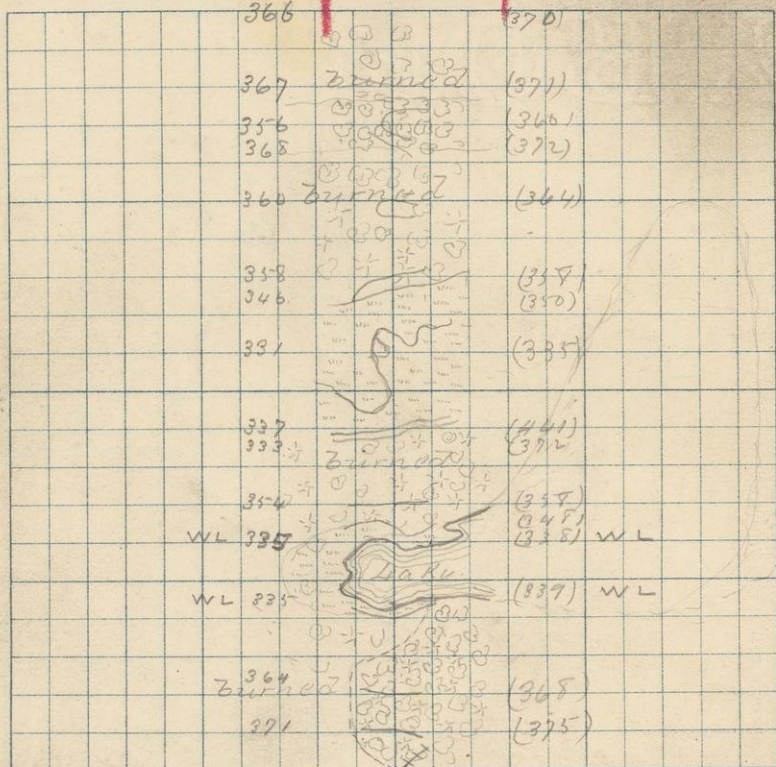 366 (370)
367 burned (371)
356 (360)
368 (372)
360 burned (364)
358 (358)
346 (350)
331 (335)
337 (441)
333 (372)
burned
354 (358)
(348)
WL 335 (338) WL
Lake
WL 335 (339) WL
364
burned (368)
371 (375)